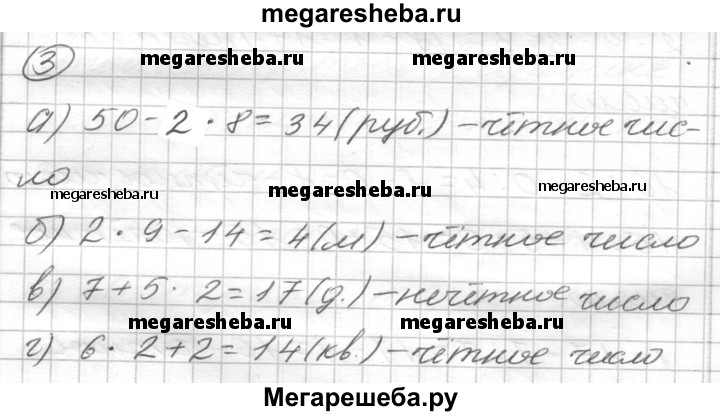 megaresheba.ru
③ megaresheba.ru megaresheba.ru
а) 50-2·8=34(руб.) -чётное чис-
ло megaresheba.ru megaresheba.ru megaresheba.ru
б) 2·9-14=4(м) -чётное число
в) 7+5·2=17(д.) -нечётное число
megaresheba.ru megaresheba.ru
г) 6·2+2=14(кв.) -чётное число
Мегарешеба.ру